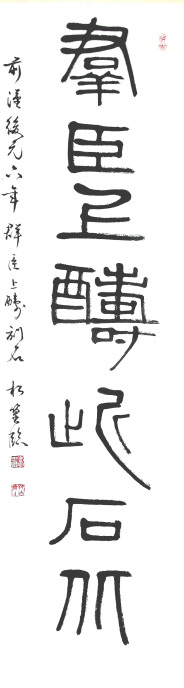 群臣上醻此石北
前漢後元六年群臣上醻刻石 松堂臨